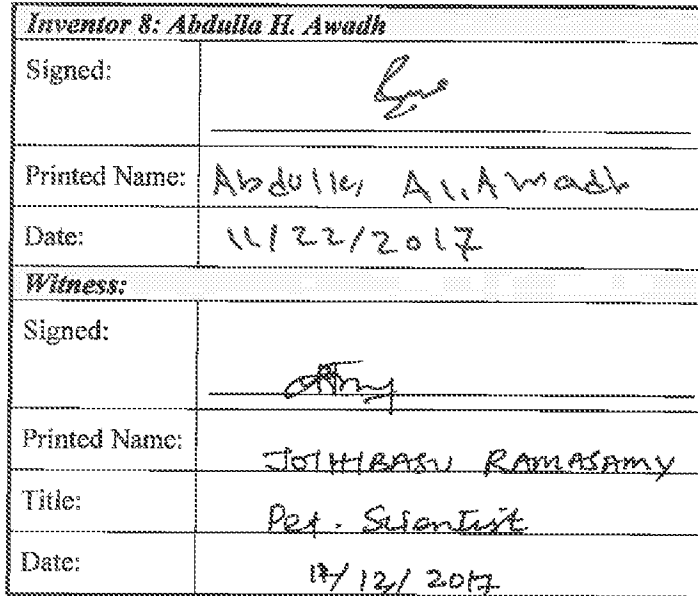 Inventor 8: Abdulla H. Awadh
Signed:
Printed Name: Abdulla Al-Awadh
Date: 11/22/2017
Witness:
Signed:
Printed Name: JOTHIBASU RAMASAMY
Title: Pet. Scientist
Date: /12/2017